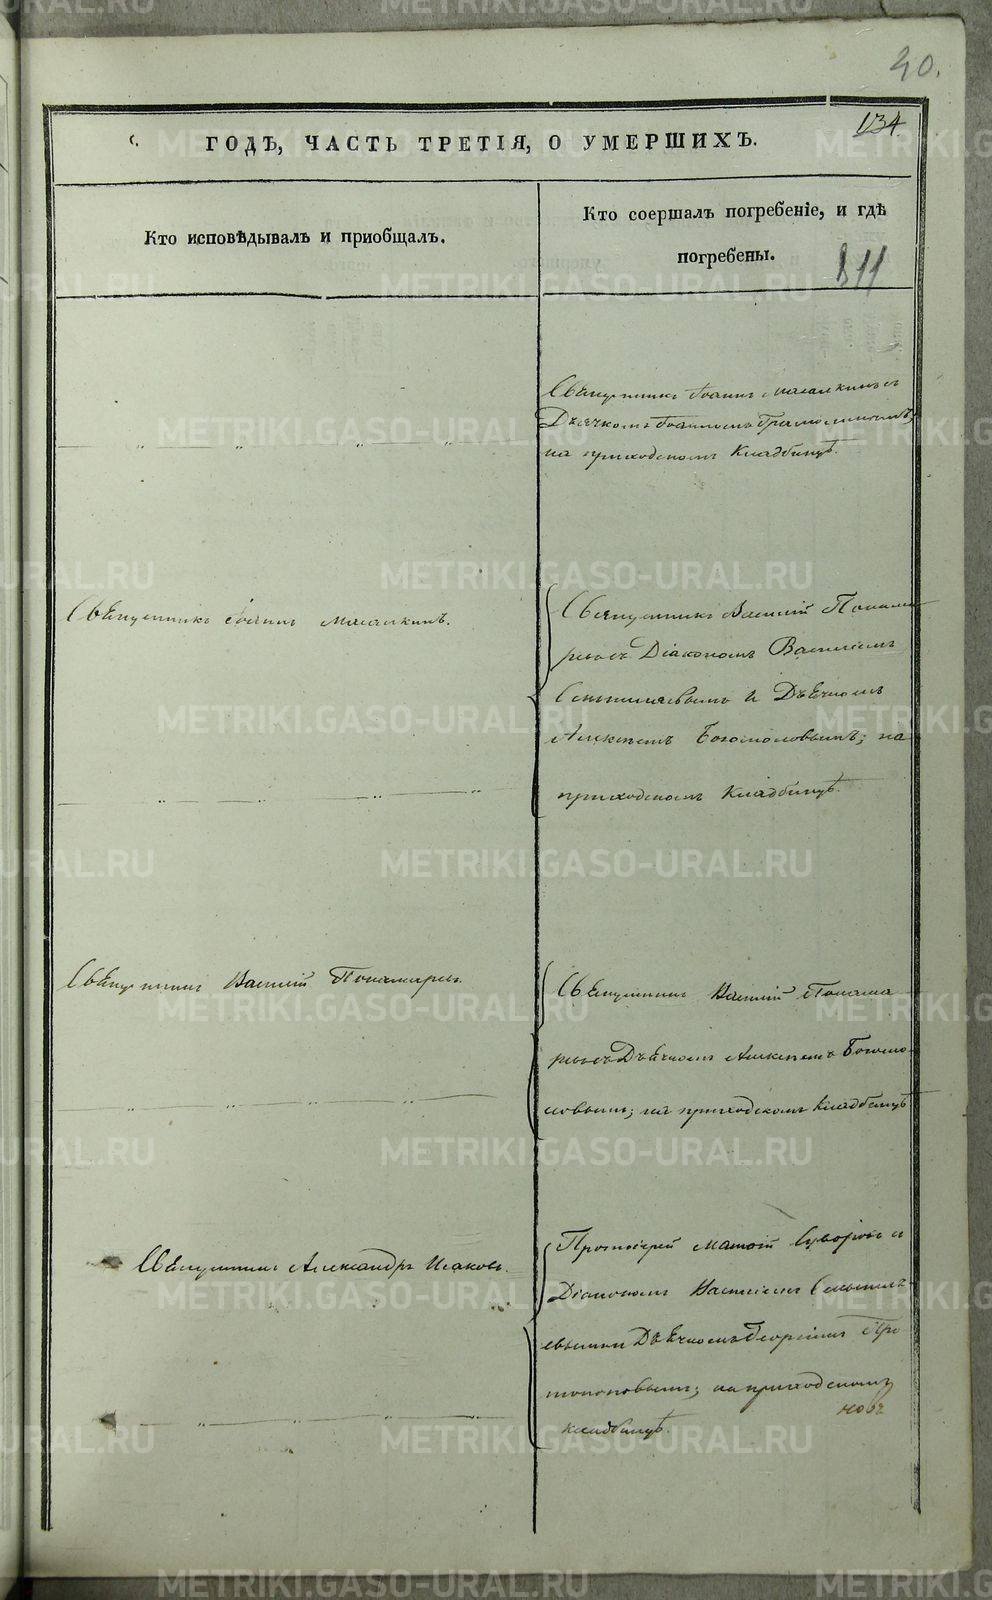 40.
134.
ГОДЪ, ЧАСТЬ ТРЕТІЯ, О УМЕРШИХЪ.
Кто исповѣдывалъ и приобщалъ.
Кто соершалъ погребеніе, и гдѣ
погребены.
811
Священникъ Іоаннъ Масалкинъ съ
Дьячкомъ Іоанномъ
на приходскомъ кладбищѣ.
Священникъ Іоаннъ Масалкинъ.
Священникъ Василій Понама
ревъ съ Діакономъ Василіемъ
и Дьячкомъ
Алексѣемъ Богомоловымъ; на
приходскомъ кладбищѣ.
Священникъ Василій Понамаревъ.
Священникъ Василій Понама
ревъ съ Дьячкомъ Алексѣемъ Богомо-
ловымъ; на приходскомъ кладбищѣ
Священникъ Александръ Исаковъ.
Протоіерей Матѳій Суворовъ съ
Діакономъ Василіемъ
Дьячкомъ Георгіемъ Про
топоповымъ; на приходскомъ
новъ
кладбищѣ.
METRIKI.GASO-URAL.RU